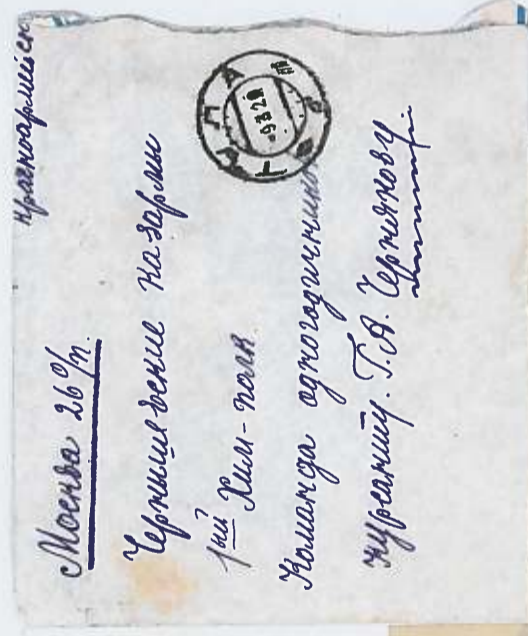 Красноармейск
Москва 26 о/п.
Чернышевские казармы
1ый Хим-полк
Команда одногодичников
курсанту. Г.А. Чернякову
-9 3 29